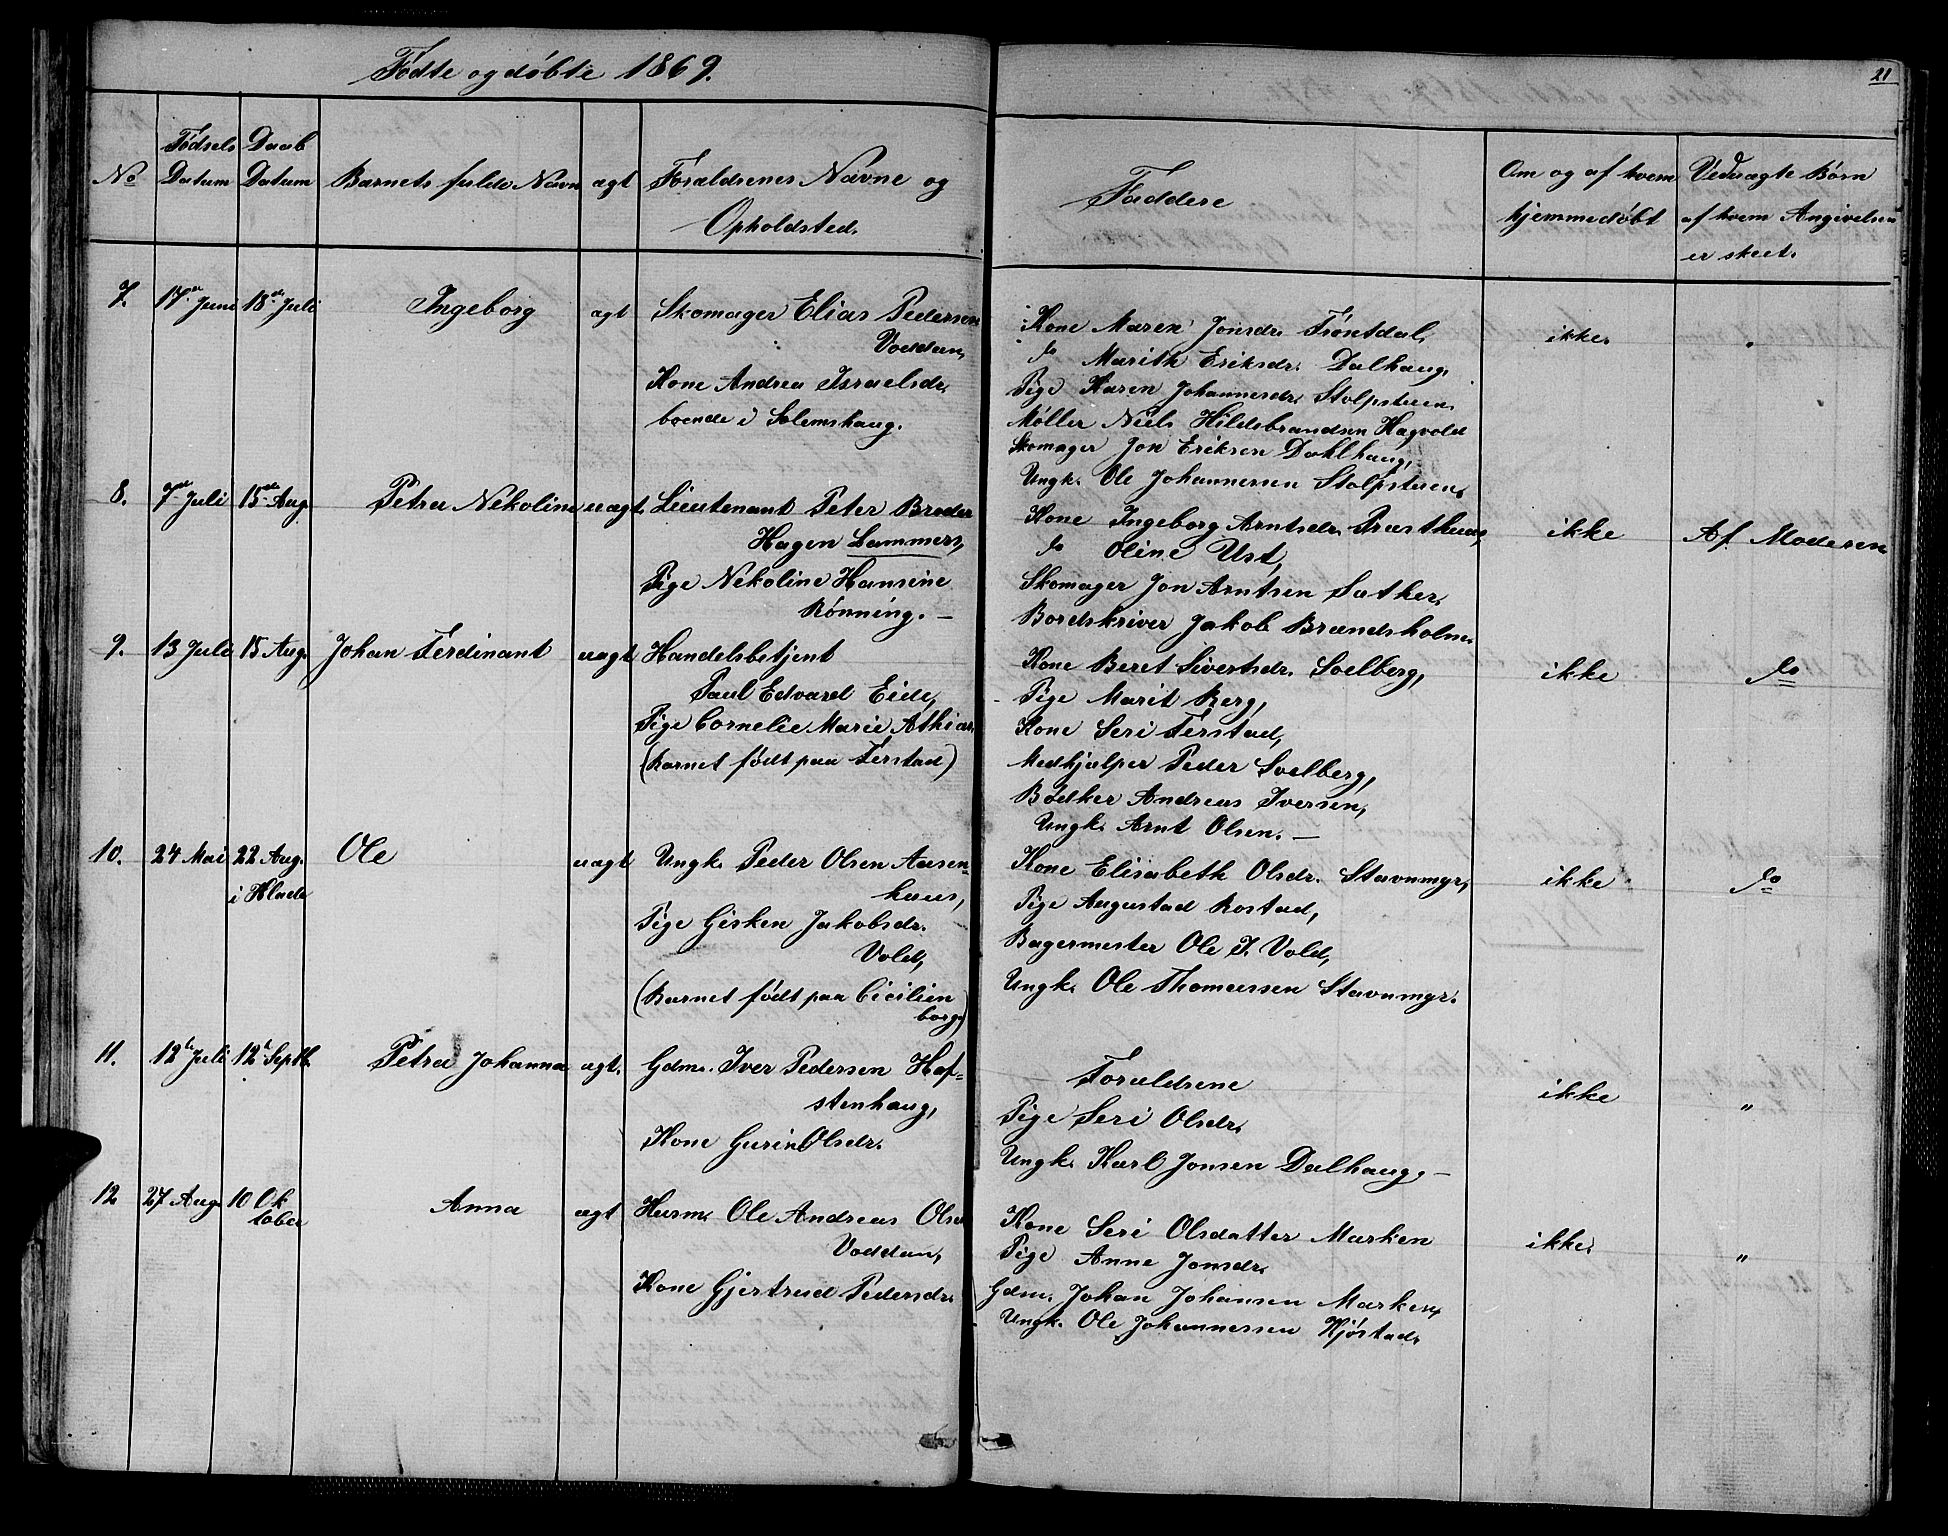 Fødte og døbte 1869.
21
No
Fødsels Datum
Daab Datum
Barnets fulde Navn
ægt
Forældrenes Navne og
Opholdsted.
Faddere
Om og af hvem
hjemmedøbt
Ved uægte Børn
af hvem Angivelsen
er skeet.
7. 17de Juni 18de Juli Ingeborg ægt Skomager Elias Pedersen
Voddan,
Kone Andrea Israelsdr.
boende i Solemshaug.
Kone Maren Jonsdr. Frøntdal,
do Marith Eriksdr. Dalhaug,
Pige Karen Johannesdr. Stolpstuen.
Møller Niels Hildebrandsen Hagvold
Skomager Jon Eriksen Dahlhaug,
Ungk. Ole Johannesen Stolpstuen.
ikke. "
8. 7de Juli 15de Aug. Petra Nekoline uægt. Lieutenant Peter Broder
Hagen Lammers,
Pige Nekoline Hansine
Rønning. —
Kone Ingeborg Arntsdr. Præsthuus,
do Oline Ust,
Skomager Jon Arntsen Sæther.
Bordskriver Jakob Brændsholm.
ikke Af Moderen
9. 13 Juli 15 Aug. Johan Ferdinant uægt Handelsbetjent
Paul Edvard Eide,
Pige Cornelie Marie Athiar.
(Barnet født paa Ferstad)
Kone Beret Sivertsdr. Soelberg,
Pige Marit Berg,
Kone Seri Ferstad,
Medhjælper Peder Soelberg,
Bødker Andreas Iversen,
Ungk. Arnt Olsen. —
ikke do
10. 24 Mai 22 Aug. i Hlade Ole uægt Ungk. Peder Olsen Aasen-
huus,
Pige Gisken Jakobsdr.
Vold,
(Barnet født paa Cicilien
borg)
Kone Elisabeth Olsdr. Stavnmyr,
Pige Augustad Rostad,
Bagermester Ole J. Vold,
Ungk. Ole Thomassen Stavnmyr.
ikke do
11. 12te Juli 12te Septb. Petra Johanna ægt. Gdm. Iver Pedersen Haf-
stenhaug,
Kone Gurin Olsdr.
Forældrene
Pige Seri Olsdr.
Ungk. Karl Jonsen Dalhaug. —
ikke "
12 27 Aug. 10 Oktober Anna ægt Husm. Ole Andreas Olsen
Voddan,
Kone Gjertrud Pedersdr.
Kone Seri Olsdatter Marken
Pige Anne Jonsdr.
Gdm. Johan Johansen Marken,
Ungk. Ole Johannessen Kjøstad.
ikke. "